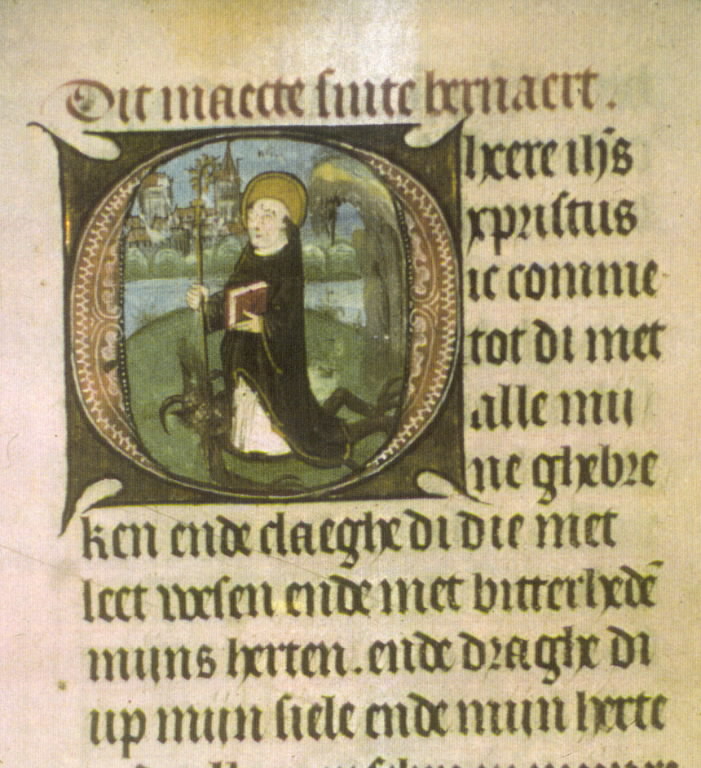 Dit maecte sinte bernaert.
O heere ih̄s
xpristus
ic comme
tot di met
alle mij
ne ghebre
ken ende claeghe di die met
leet wesen ende met bitterhedē
mijns herten. ende draghe di
up mijn siele ende mijn herte